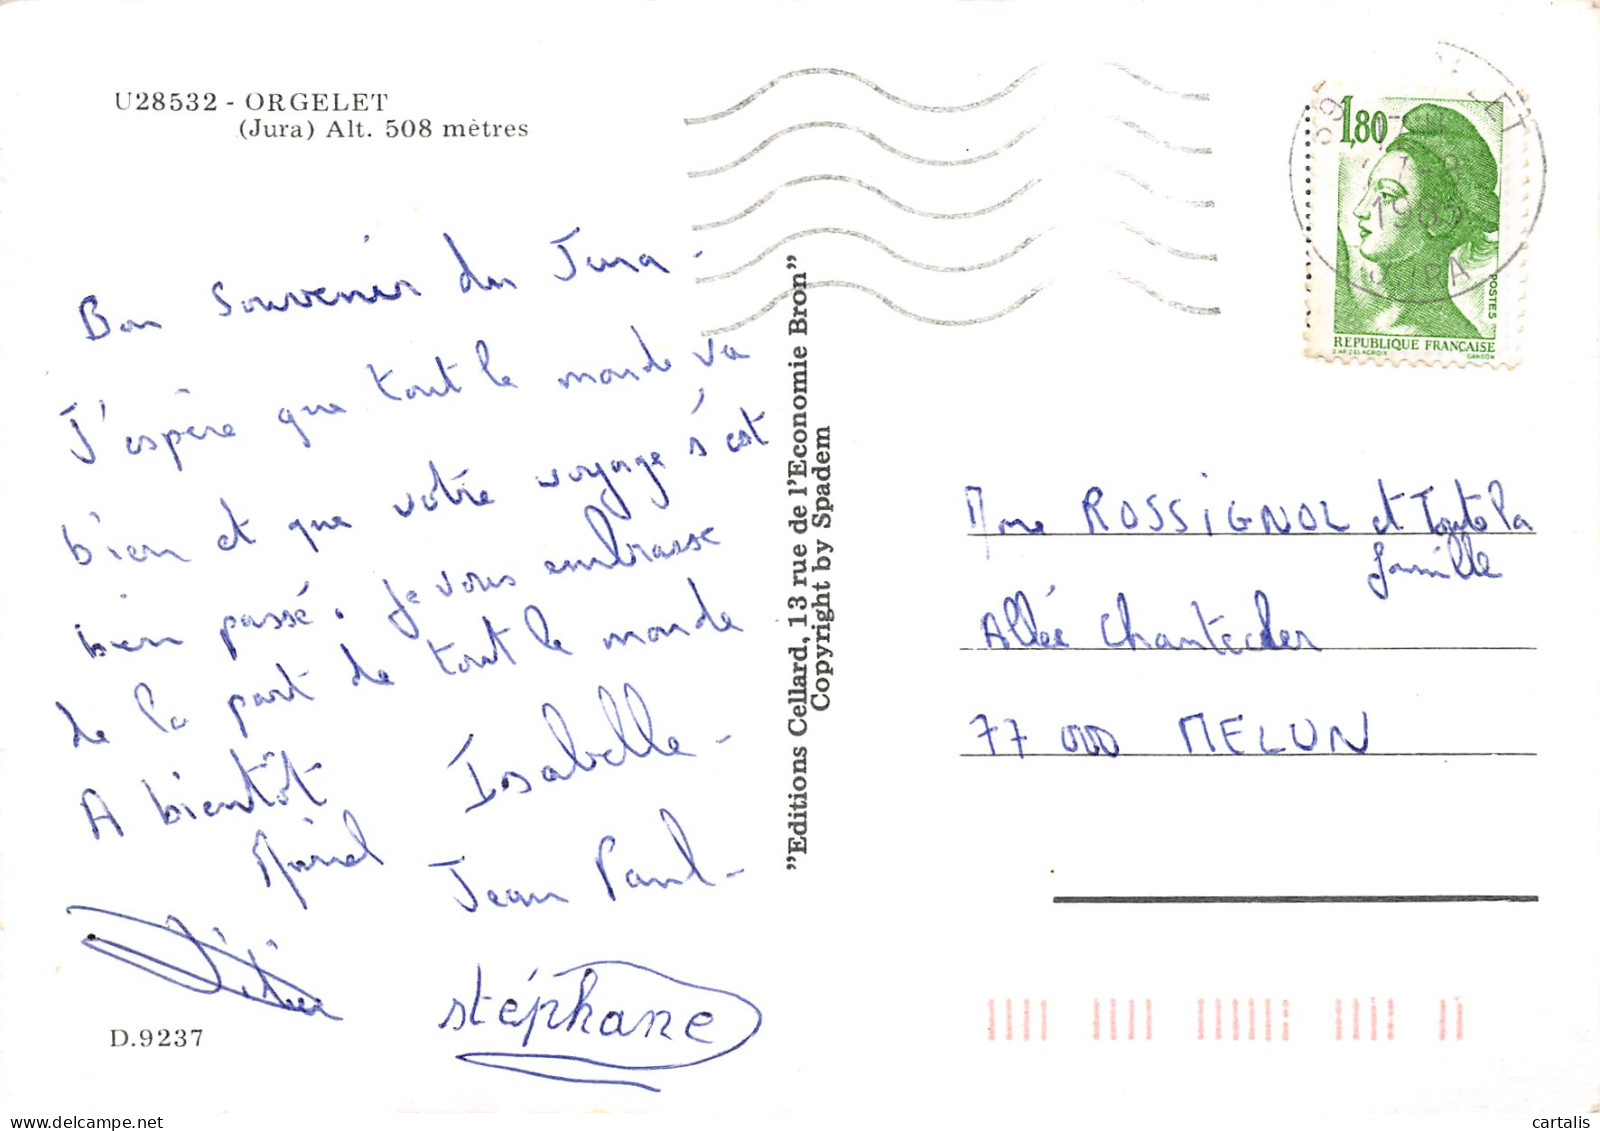 U28532 - ORGELET
(Jura) Alt. 508 mètres
Bon Souvenir du Jura -
J'espère que tout le monde va
bien et que votre voyage s'est
bien passé. Je vous embrasse
de la part de tout le monde
A bientôt
Isabelle -
Jean Paul -
stéphane
D.9237
"Editions Cellard, 13 rue de l'Economie Bron"
Copyright by Spadem
1,80
POSTES
REPUBLIQUE FRANÇAISE
GANDON
JURA
Mme ROSSIGNOL et Toute la
famille
Allée Chantecler
77 000 MELUN
cartalis